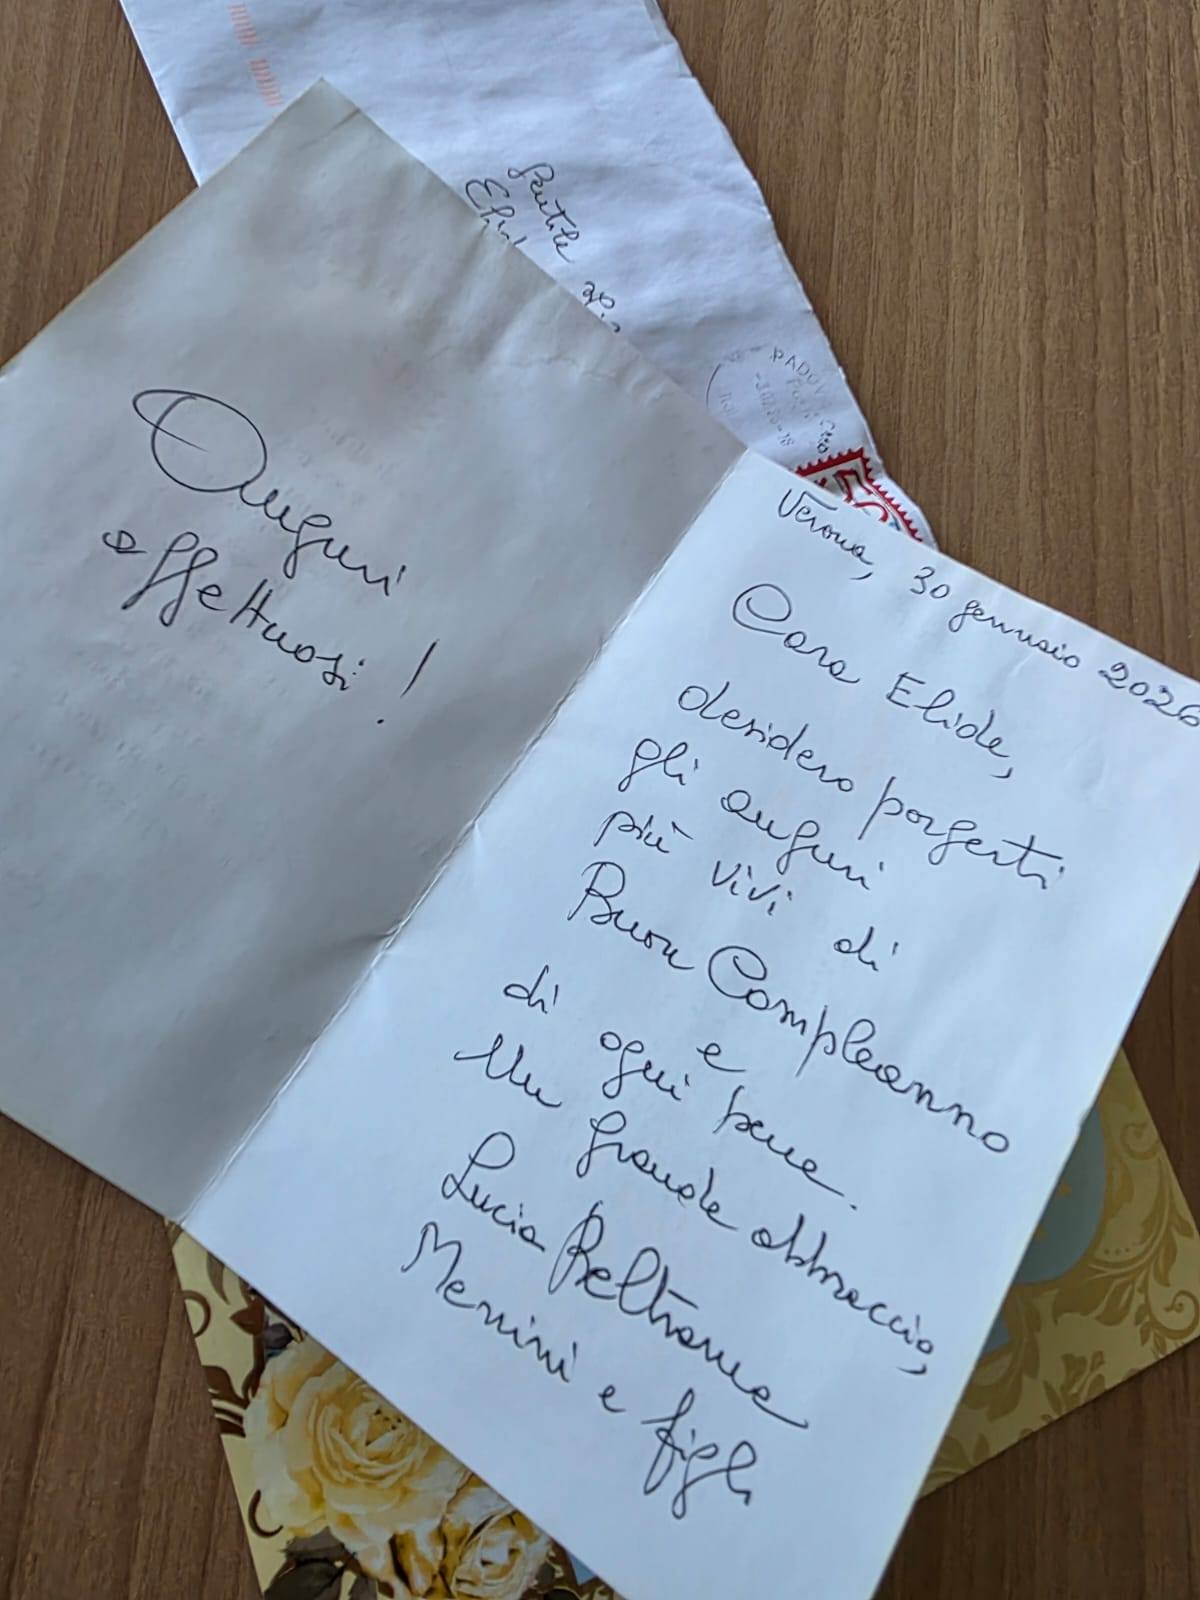 Gentile
PADOVA
Auguri
affettuosi!
Verona, 30 gennaio 2026
Cara Elide,
desidero porgerti
gli auguri
più vivi di
Buon Compleanno
e
di ogni bene.
Un grande abbraccio,
Lucia Beltrame
Menini e figli